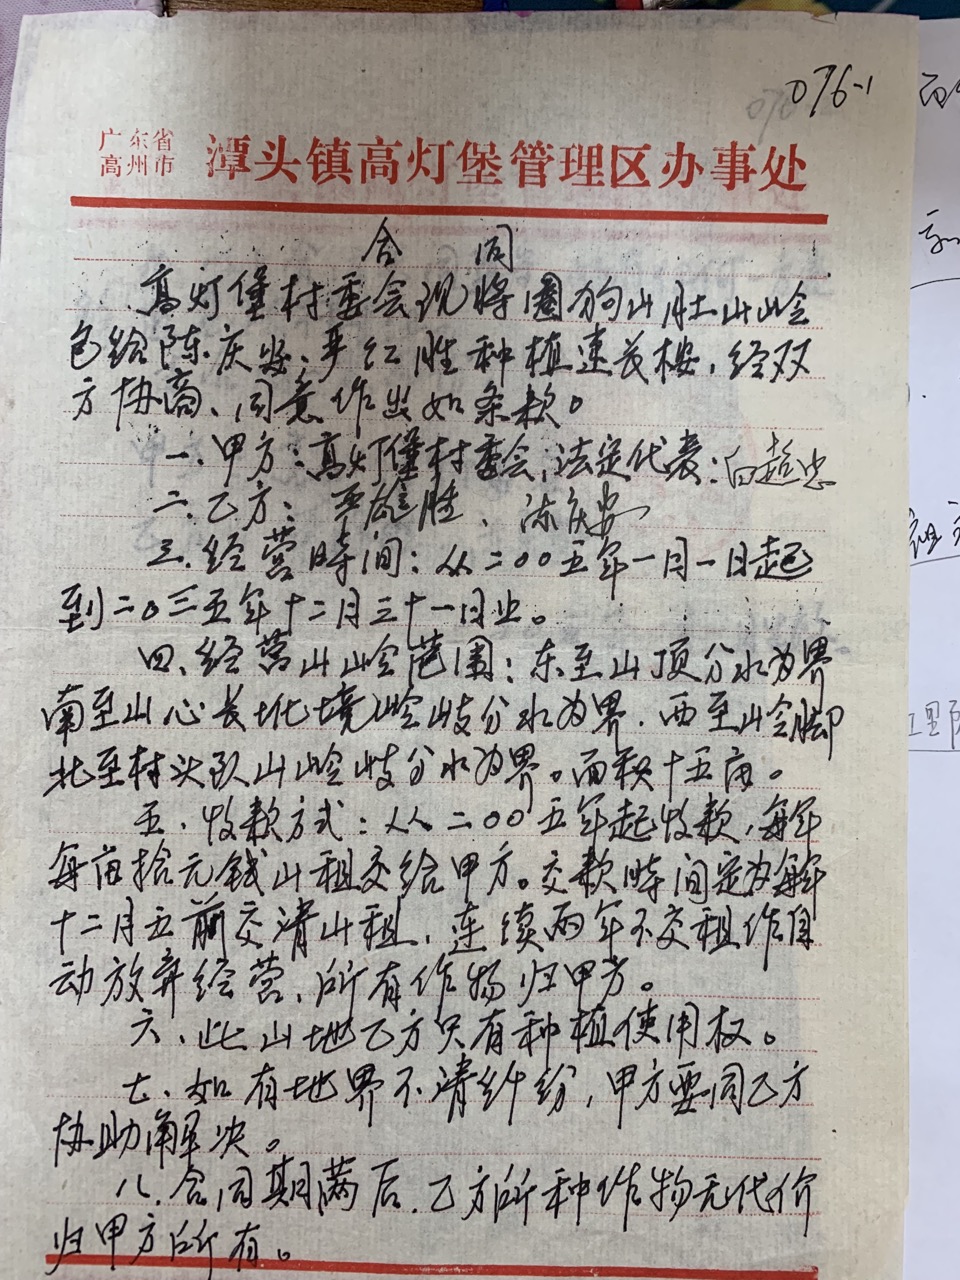 076-1
广东省
高州市
潭头镇高灯堡管理区办事处
合 同
高灯堡村委会现将圈狗山肚山岭
包给陈庆安、严红胜种植速长桉,经双
方协商、同意作出如条款。
一.甲方:高灯堡村委会,法定代表:白超忠
二.乙方:严雄胜、陈庆安
三.经营時间:从二00五年一月一日起
到二0三五年十二月三十一日止。
四、经营山岭范围:东至山顶分水为界
南至山心长圵境岭歧分水为界.西至山岭脚
北至村头队山岭歧分水为界。面积十五亩。
五、收款方式:从二00五年起收款,每年
每亩拾元钱山租交给甲方。交款時间定为每年
十二月五前交清山租,连续两年不交租作自
动放弃经营、所有作物归甲方。
六、此山地乙方只有种植使用权。
七、如有地界不清纠纷,甲方要同乙方
协助解决。
八.合同期满后.乙方所种作物无代价
归甲方所有。